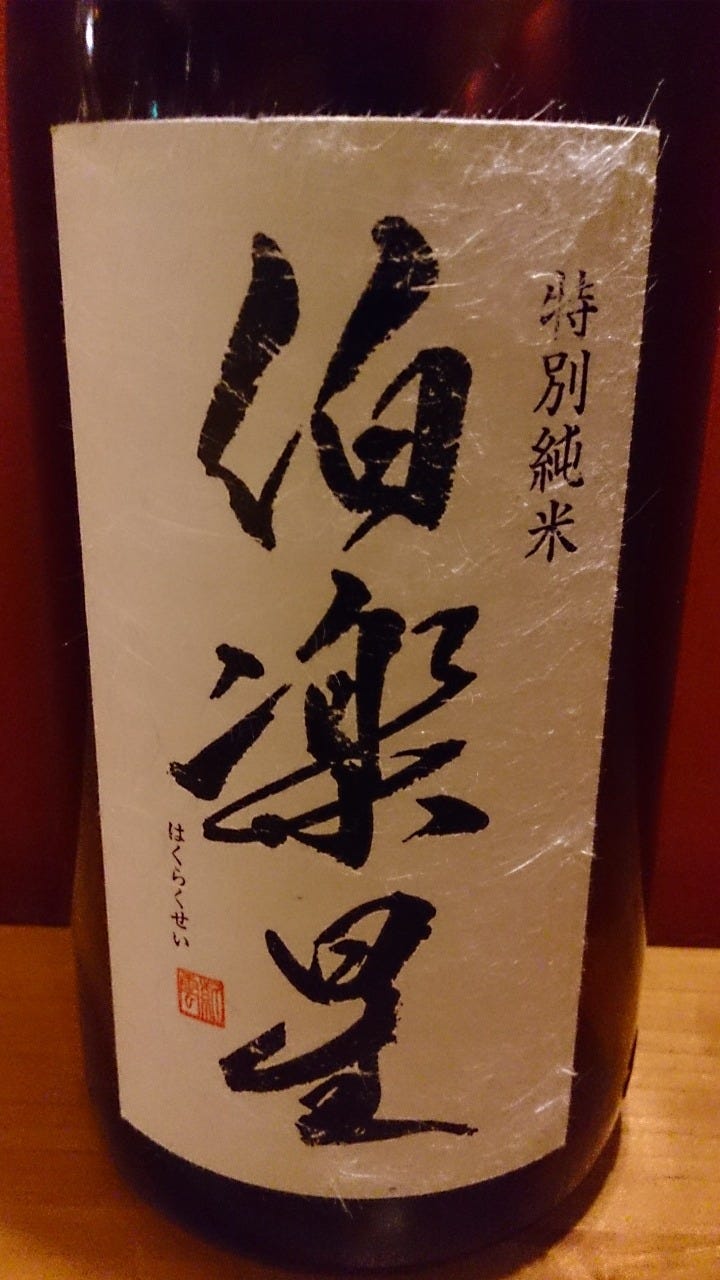 特別純米
伯楽星
はくらくせい